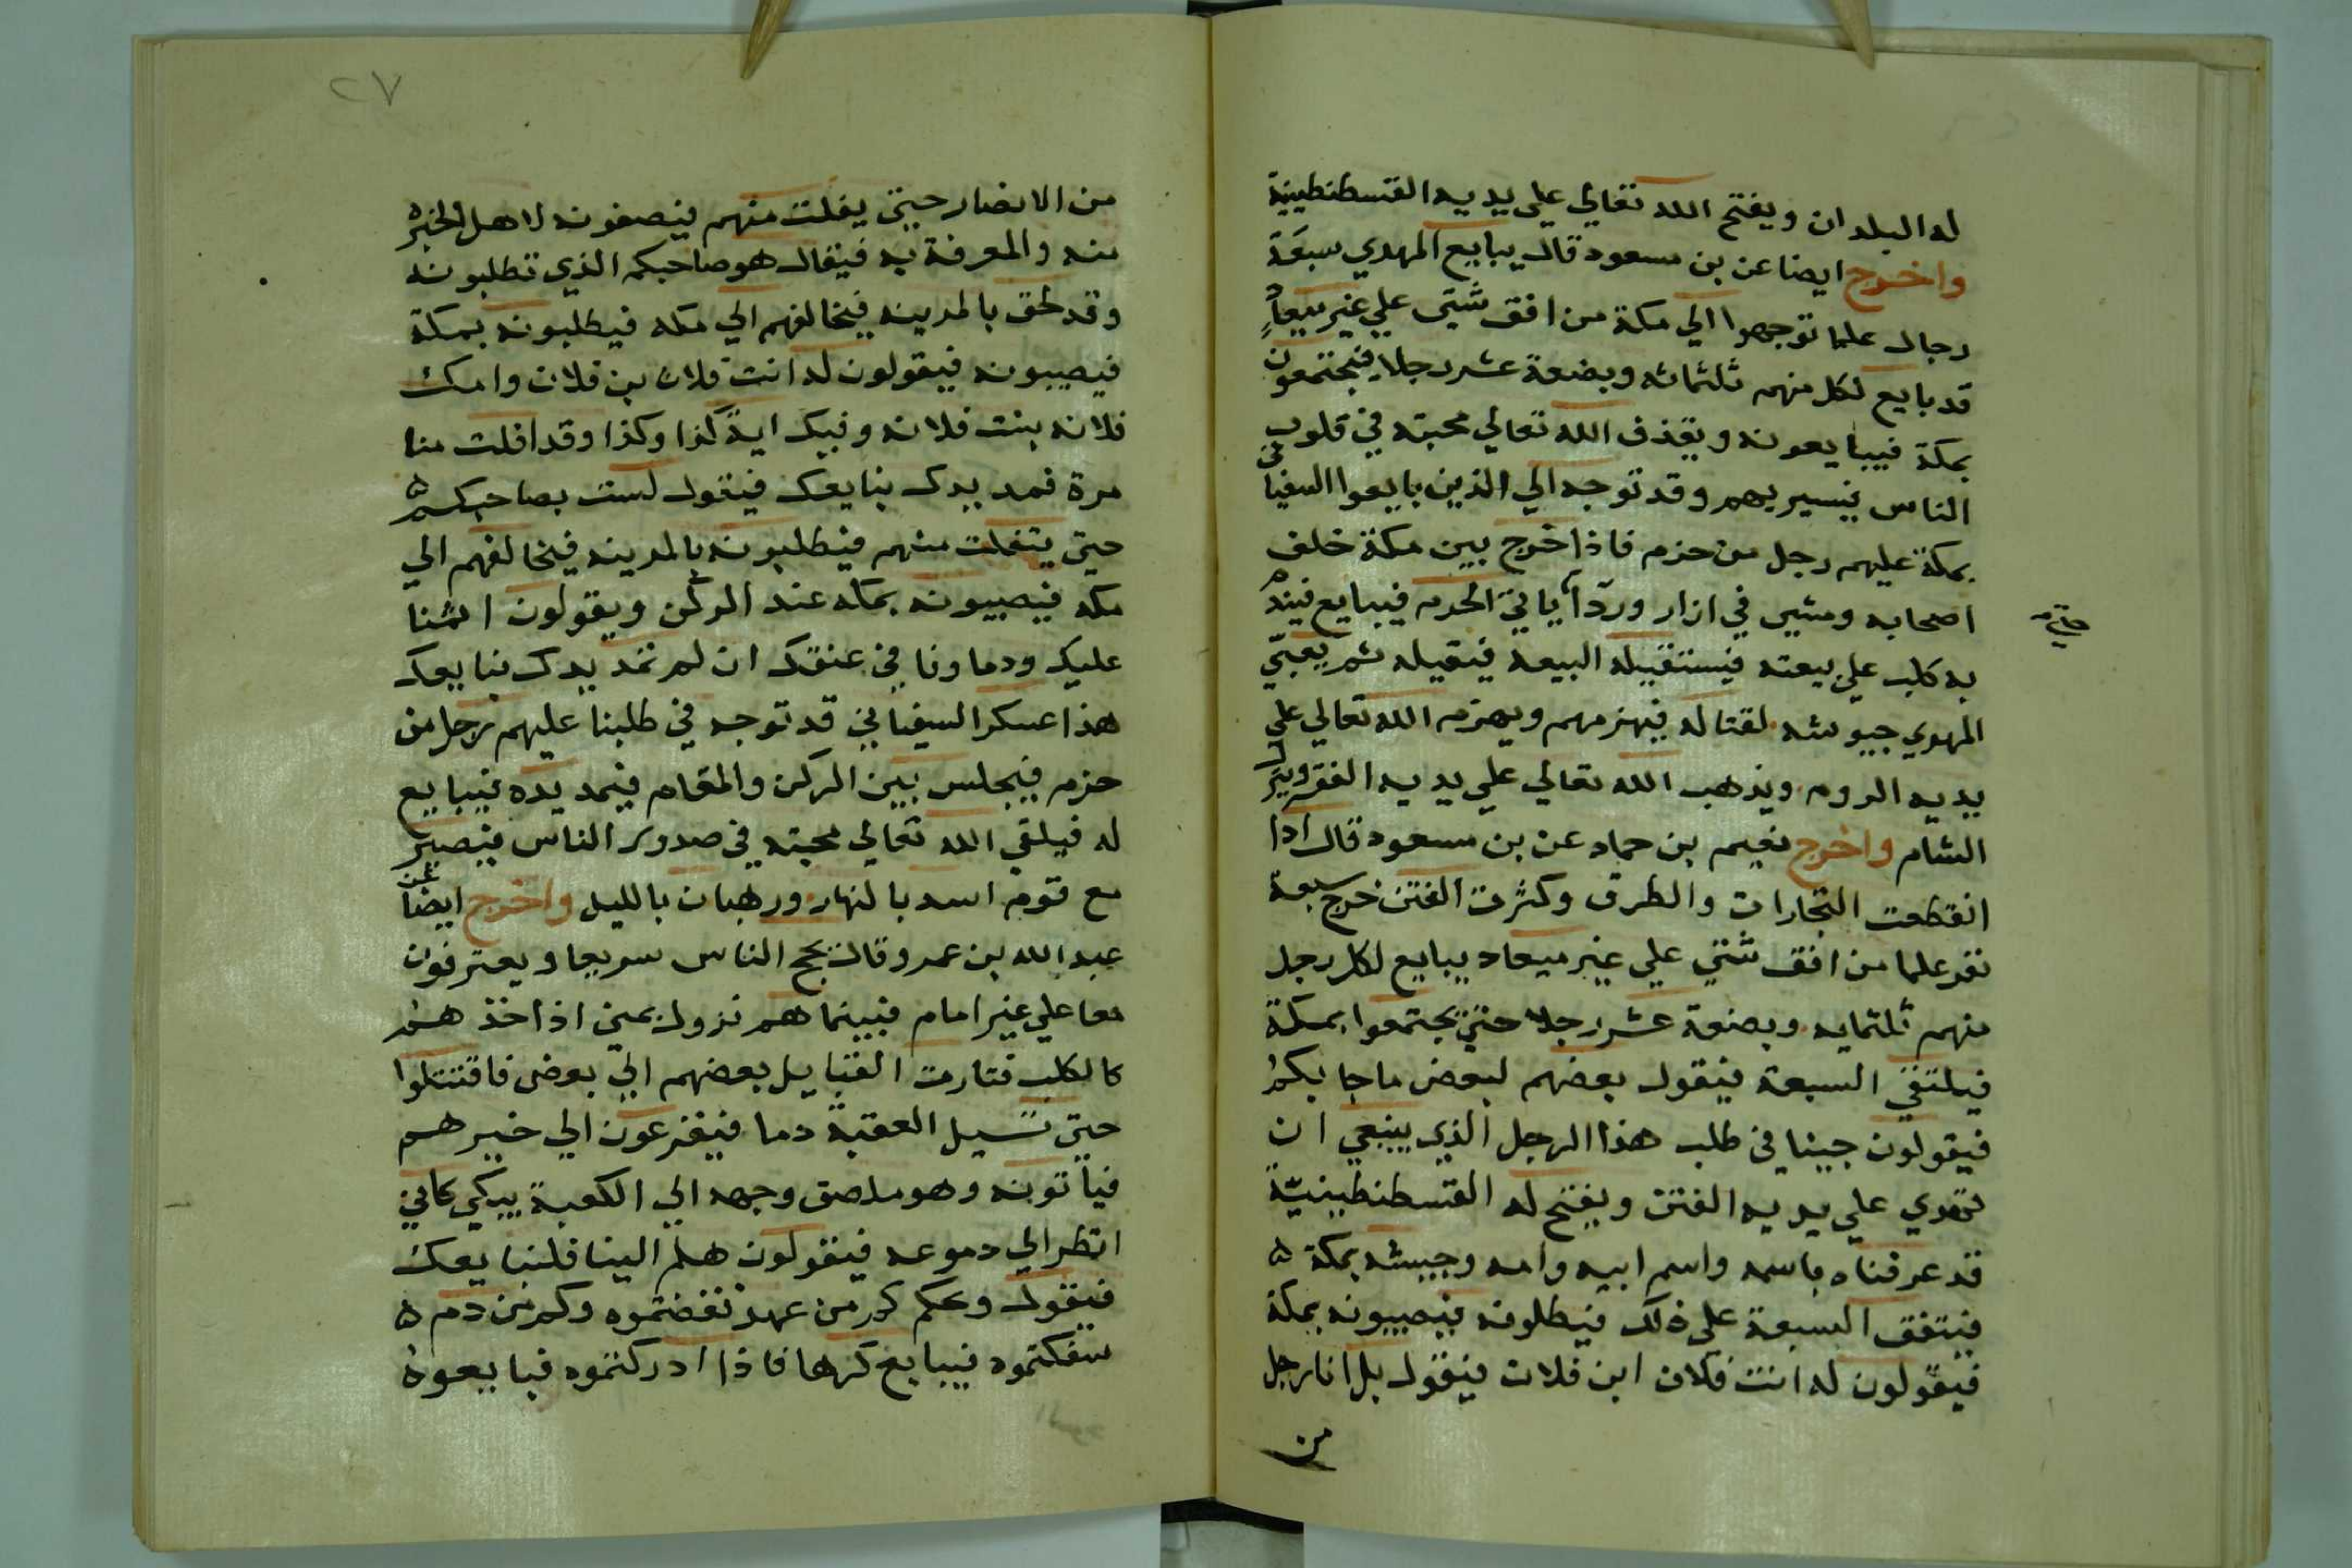 له البلدان ويفتح الله تعالي علي يديه القسطنطينية
واخرج ايضا عن بن مسعود قال يبايع المهدي سبعة
رجال علما توجهوا الي مكة من افق شتي علي غير ميعاد
قد بايع لكل منهم ثلثمائه وبضعة عشر رجلا فيجتمعون
بمكة فيبايعونه ويقذف الله تعالي محبته في قلوب
الناس فيسير بهم وقد توجه الي الذين بايعوا السفياني
بمكة عليهم رجل من حزم فاذا خرج بين مكة خلف
اصحابه ومشي في ازار وردا ياتي الحرم فيبايع فيندم
به كلب علي بيعته فيستقيله البيعه فيقيله ثم يعبي
المهدي جيوشه لقتاله فيهزمهم ويهزم الله تعالي علي
يديه الروم ويذهب الله تعالي علي يديه الفقر وينزل
الشام واخرج نعيم بن حماد عن بن مسعود قال اذا
انقطعت التجارات والطرق وكثرت الفتن خرج سبعة
نفر علما من افق شتي علي غير ميعاد يبايع لكل رجل
منهم ثلثمايه وبضعة عشر رجلا حتي يجتمعوا بمكة
فيلتقي السبعة فيقول بعضهم لبعض ما جا بكم
فيقولون جينا في طلب هذا الرجل الذي ينبغي ان
تهدي علي يديه الفتن ويفتح له القسطنطينية
قد عرفناه باسمه واسم ابيه وامه وجيشه بمكة ه
فيتفق السبعة علي ذلك فيطلونه فيصيبونه بمكة
فيقولون له انت فلان ابن فلان فيقول بل انا رجل
من
٢٧
من الانصار حتي يفلت منهم فيصفونه لاهل الخبره
منه والمعرفة به فيقال هو صاحبكم الذي تطلبونه
وقد لحق بالمدينه فيخالفهم الي مكه فيطلبونه بمكة
فيصيبونه فيقولون له انت فلان بن فلان وامك
فلانه بنت فلانه وفيك اية كذا وكذا وقد افلت منا
مرة فمد يدك نبايعك فيقول لست بصاحبكم ه
حتي يتفلت منهم فيطلبونه بالمدينه فيخالفهم الي
مكه فيصيبونه بمكه عند الركن ويقولون اثمنا
عليك ودماونا في عنقك ان لم تمد يدك نبايعك
هذا عسكر السفياني قد توجه في طلبنا عليهم رجل من
حزم فيجلس بين الركن والمقام فيمد يده فيبايع
له فيلقي الله تعالي محبته في صدور الناس فيصير
مع قوم اسد بالنهار ورهبان بالليل واخرج ايضا عن
عبد الله بن عمرو قال يحج الناس سريعا ويعترفون
معا علي غير امام فبينما هم نزول بمني اذ اخذهم
كالكلب فثارت القبايل بعضهم الي بعض فاقتتلوا
حتي تسيل العقبة دما فيفزعون الي خيرهم
فياتونه وهو ملصق وجهه الي الكعبة يبكي كاني
انظر الي دموعه فيقولون هلم الينا فلنبايعك
فيقول ويحكم كم من عهد نقضتموه وكم من دم ه
سفكتموه فيبايع كرها فاذا ادركتموه فبايعوه